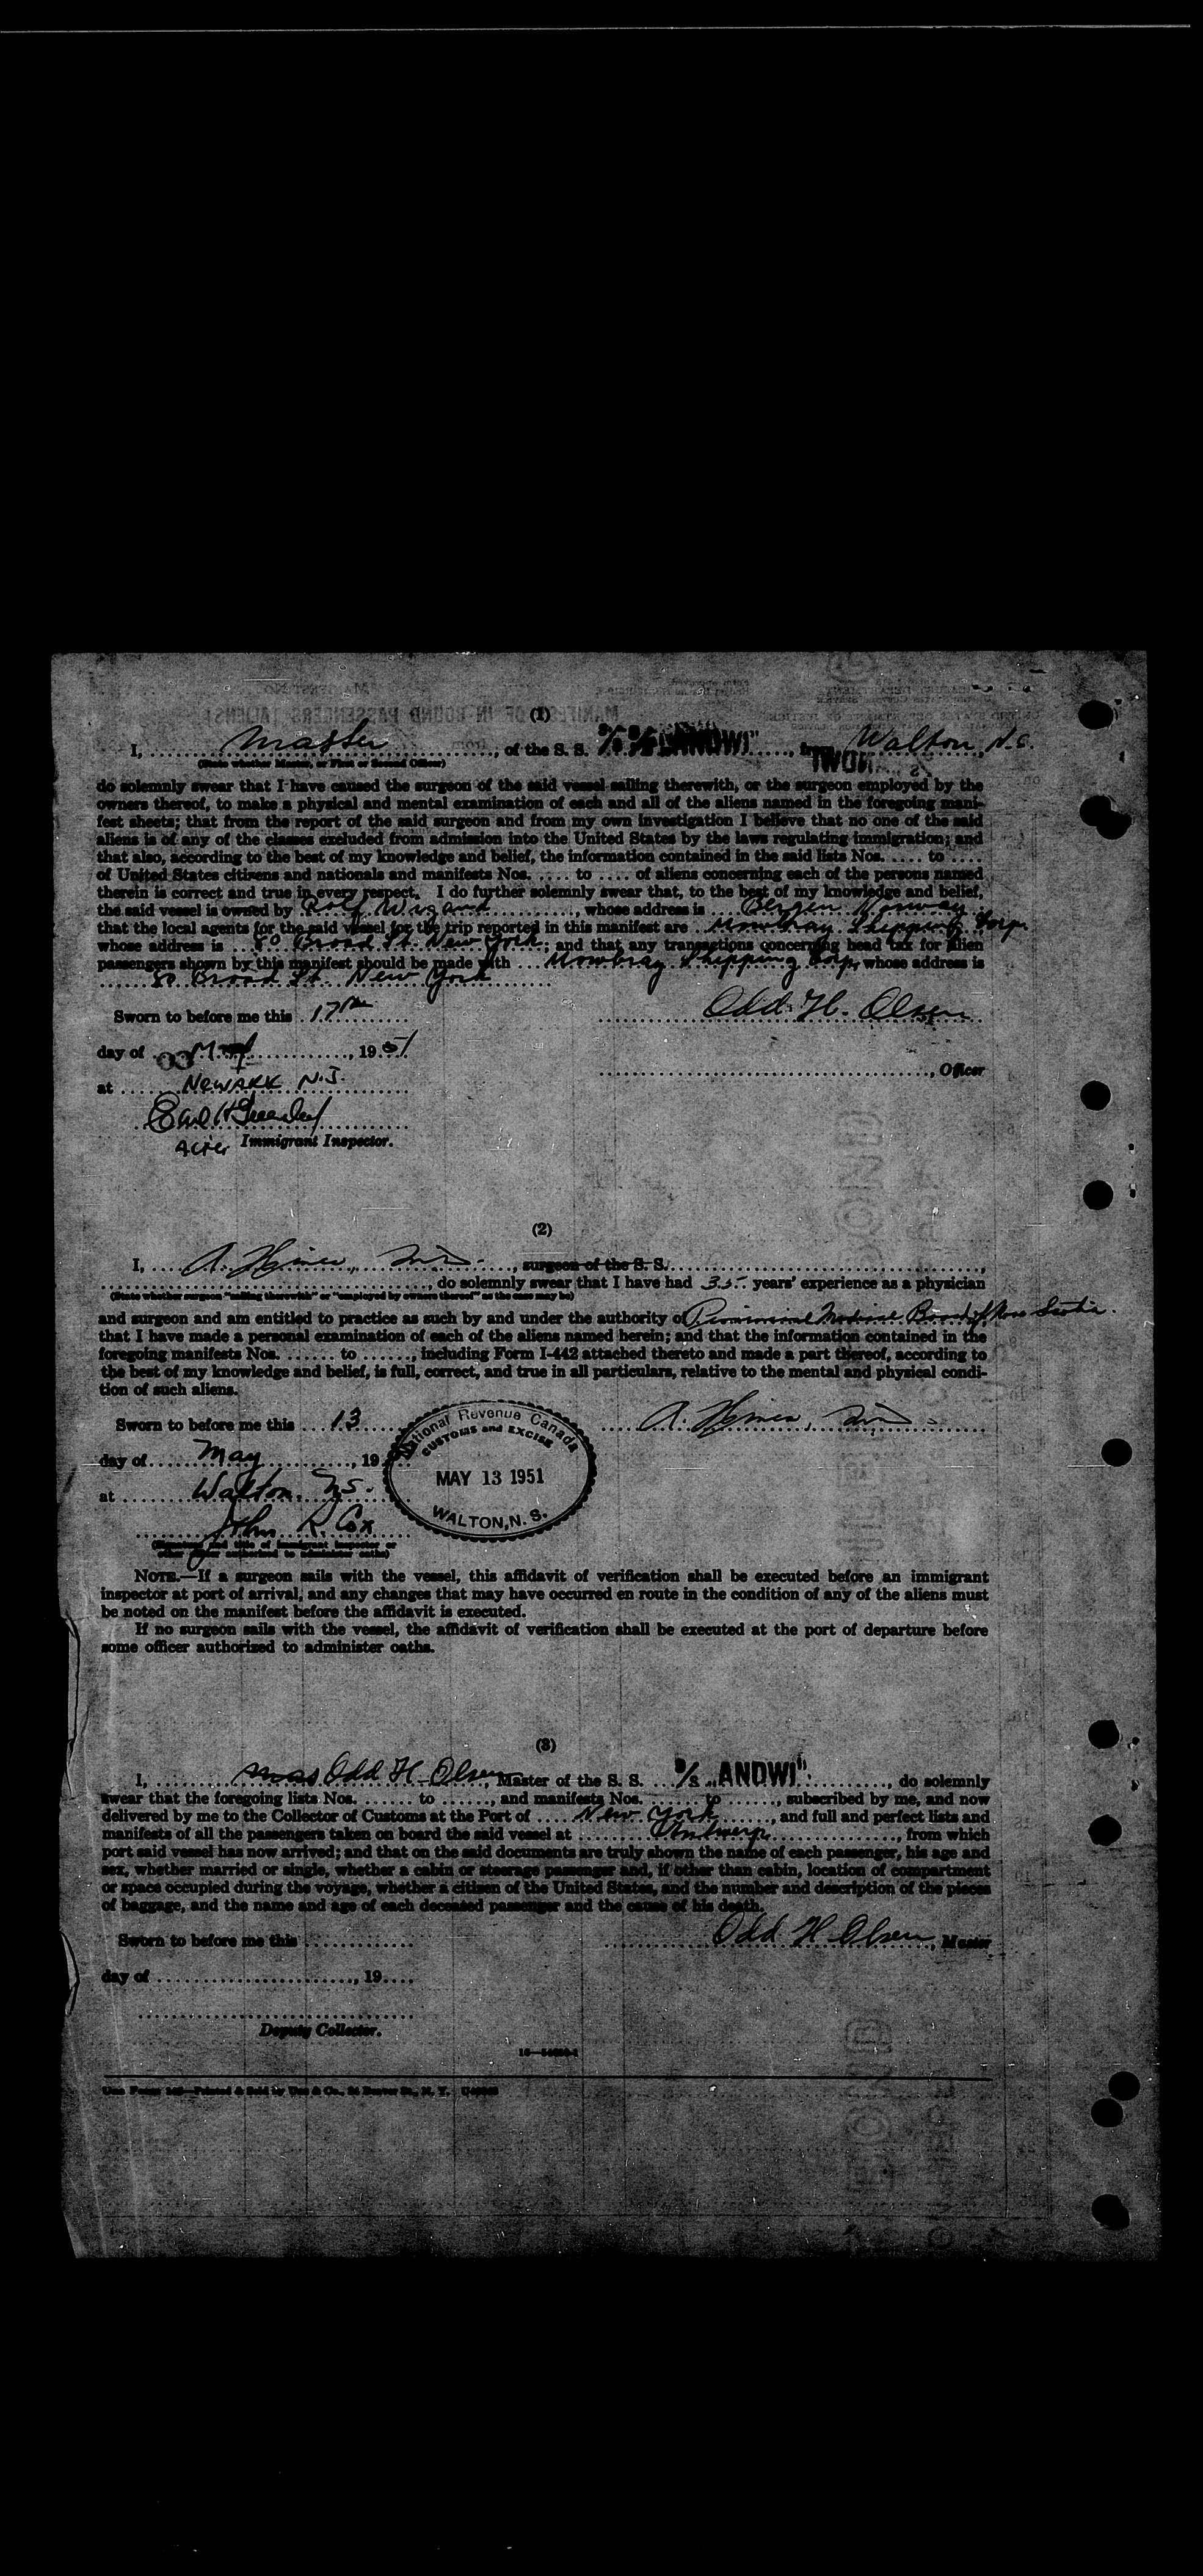 (1)
I, Master, of the S. S. S/S "ANDWI", from Walton, N.S.
(State whether Master, or First or Second Officer)
do solemnly swear that I have caused the surgeon of the said vessel sailing therewith, or the surgeon employed by the
owners thereof, to make a physical and mental examination of each and all of the aliens named in the foregoing mani-
fest sheets; that from the report of the said surgeon and from my own investigation I believe that no one of the said
aliens is of any of the classes excluded from admission into the United States by the laws regulating immigration; and
that also, according to the best of my knowledge and belief, the information contained in the said lists Nos. .... to ....
of United States citizens and nationals and manifests Nos. .... to .... of aliens concerning each of the persons named
therein is correct and true in every respect. I do further solemnly swear that, to the best of my knowledge and belief,
the said vessel is owned by Rolf Wigand, whose address is Bergen Norway
that the local agents for the said vessel for the trip reported in this manifest are Mowbray Shipping Corp.
whose address is 80 Broad St. New York; and that any transactions concerning head tax for alien
passengers shown by this manifest should be made with Mowbray Shipping Corp, whose address is
80 Broad St. New York
Sworn to before me this 17th
Odd H. Olsen
day of May, 1951
, Officer
at Newark N.J.
Immigrant Inspector.
(2)
I, A. Hines, M.D., surgeon of the S. S.
, do solemnly swear that I have had 35 years' experience as a physician
(State whether surgeon "sailing therewith" or "employed by owners thereof" as the case may be)
and surgeon and am entitled to practice as such by and under the authority of Provincial Medical Board of Nova Scotia.
that I have made a personal examination of each of the aliens named herein; and that the information contained in the
foregoing manifests Nos. ...... to ......, including Form I-442 attached thereto and made a part thereof, according to
the best of my knowledge and belief, is full, correct, and true in all particulars, relative to the mental and physical condi-
tion of such aliens.
Sworn to before me this 13
A. Hines, M.D.
day of May, 19
at Walton, N.S.
John R. Cox
(Signature and title of immigrant inspector or
other officer authorized to administer oaths)
National Revenue Canada
CUSTOMS and EXCISE
MAY 13 1951
WALTON, N. S.
NOTE.—If a surgeon sails with the vessel, this affidavit of verification shall be executed before an immigrant
inspector at port of arrival; and any changes that may have occurred en route in the condition of any of the aliens must
be noted on the manifest before the affidavit is executed.
If no surgeon sails with the vessel, the affidavit of verification shall be executed at the port of departure before
some officer authorized to administer oaths.
(3)
I, Odd H. Olsen, Master of the S. S. S/S "ANDWI", do solemnly
swear that the foregoing lists Nos. ...... to ......, and manifests Nos. ...... to ......, subscribed by me, and now
delivered by me to the Collector of Customs at the Port of New York, and full and perfect lists and
manifests of all the passengers taken on board the said vessel at Antwerp, from which
port said vessel has now arrived; and that on the said documents are truly shown the name of each passenger, his age and
sex, whether married or single, whether a cabin or steerage passenger and, if other than cabin, location of compartment
or space occupied during the voyage, whether a citizen of the United States, and the number and description of the pieces
of baggage, and the name and age of each deceased passenger and the cause of his death.
Sworn to before me this
Odd H Olsen, Master
day of ......, 19....
Deputy Collector.